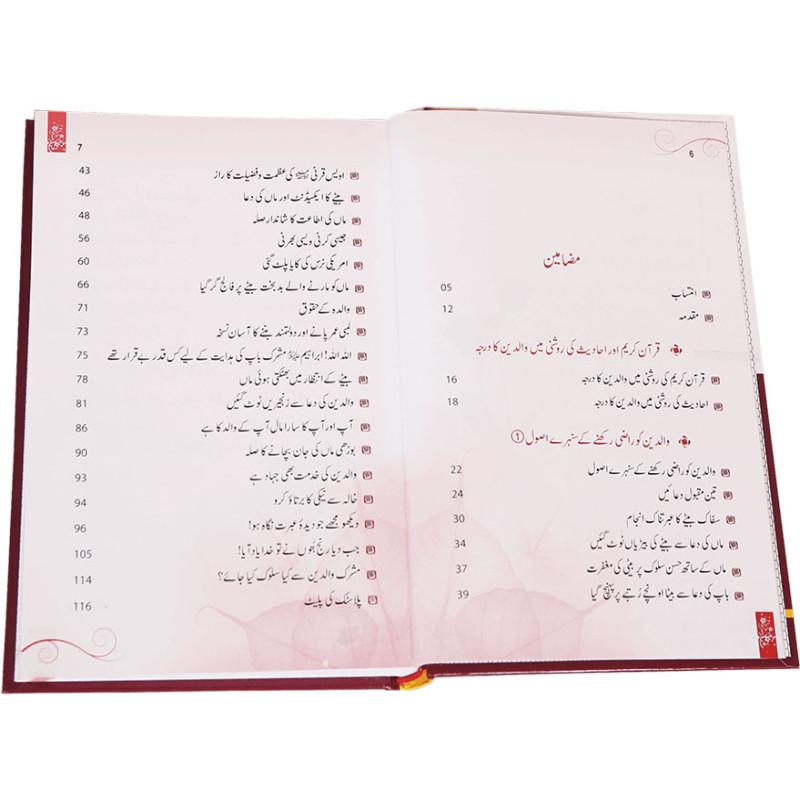 6
مضامین
انتساب 05
مقدمہ 12
قرآن کریم اور احادیث کی روشنی میں والدین کا درجہ
قرآن کریم کی روشنی میں والدین کا درجہ 16
احادیث کی روشنی میں والدین کا درجہ 18
والدین کو راضی رکھنے کے سنہرے اصول ①
والدین کو راضی رکھنے کے سنہرے اصول 22
تین مقبول دعائیں 24
سفاک بیٹے کا عبرتناک انجام 30
ماں کی دعا سے بیٹے کی بیڑیاں ٹوٹ گئیں 34
ماں کے ساتھ حسن سلوک پر بیٹی کی مغفرت 37
باپ کی دعا سے بیٹا اونچے رُتبے پر پہنچ گیا 39
7
اویس قرنی کی عظمت و فضیلت کا راز 43
بیٹے کا ایکسیڈنٹ اور ماں کی دعا 46
ماں کی اطاعت کا شاندار صلہ 48
جیسی کرنی ویسی بھرنی 56
امریکی نرس کی کایا پلٹ گئی 60
ماں کو مارنے والے بدبخت بیٹے پر فالج گر گیا 66
والدہ کے حقوق 71
لمبی عمر پانے اور دولتمند بننے کا آسان نسخہ 73
اللہ اللہ! ابراہیم مشرک باپ کی ہدایت کے لیے کس قدر بے قرار تھے 75
بیٹے کے انتظار میں بھٹکتی ہوئی ماں 78
والدین کی دعا سے زنجیریں ٹوٹ گئیں 81
آپ اور آپ کا سارا مال آپ کے والد کا ہے 86
بوڑھی ماں کی جان بچانے کا صلہ 90
والدین کی خدمت بھی جہاد ہے 93
خالہ سے نیکی کا برتاؤ کرو 94
دیکھو مجھے جو دیدۂ عبرت نگاہ ہو! 96
جب دیا رنج بتوں نے تو خدا یاد آیا! 105
مشرک والدین سے کیا سلوک کیا جائے؟ 114
پلاسٹک کی پلیٹ 116